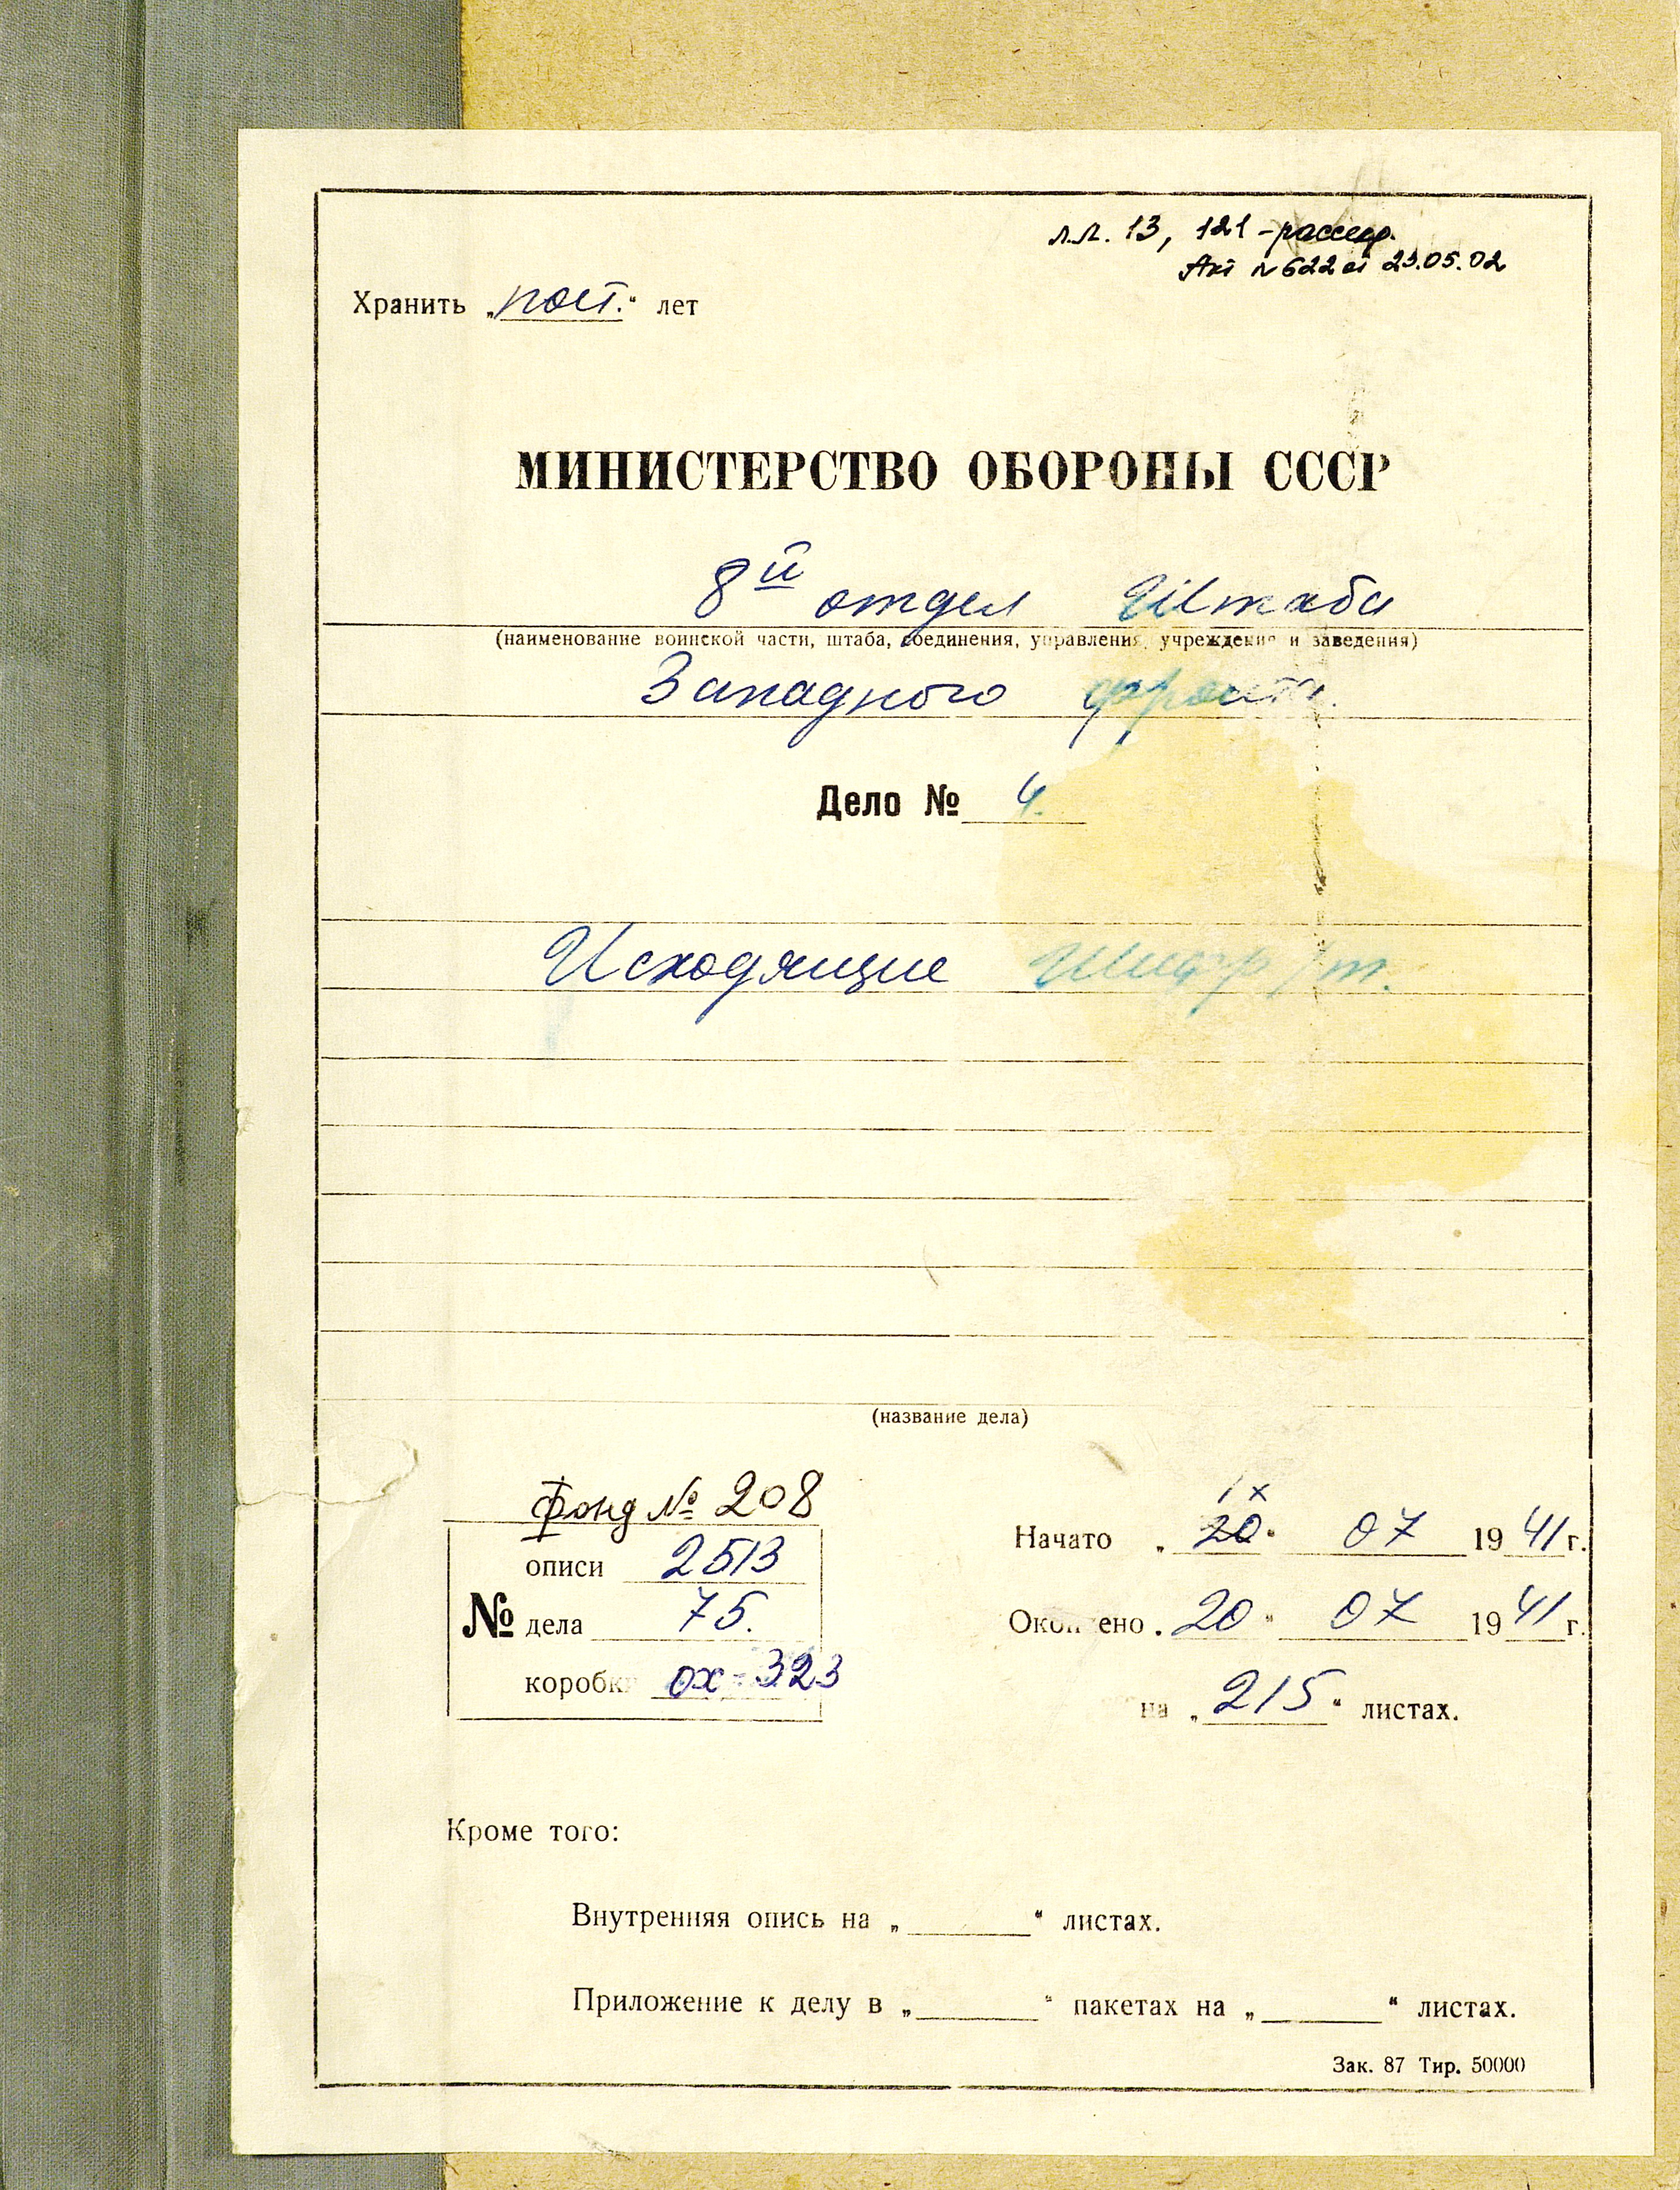 л.л. 13, 121 - рассекр.
Акт № 622 от 23.05.02
Хранить „пост.“ лет
МИНИСТЕРСТВО ОБОРОНЫ СССР
8й отдел Штаба
(наименование воинской части, штаба, соединения, управления, учреждения и заведения)
Западного фронта.
Дело № 4.
Исходящие Шифр/т.
(название дела)
Фонд № 208
описи 2513
№ дела 75.
коробки ох-323
Начато „20“ 07 1941 г.
Окончено „20“ 07 1941 г.
на „215“ листах.
Кроме того:
Внутренняя опись на „ “ листах.
Приложение к делу в „ “ пакетах на „ “ листах.
Зак. 87 Тир. 50000